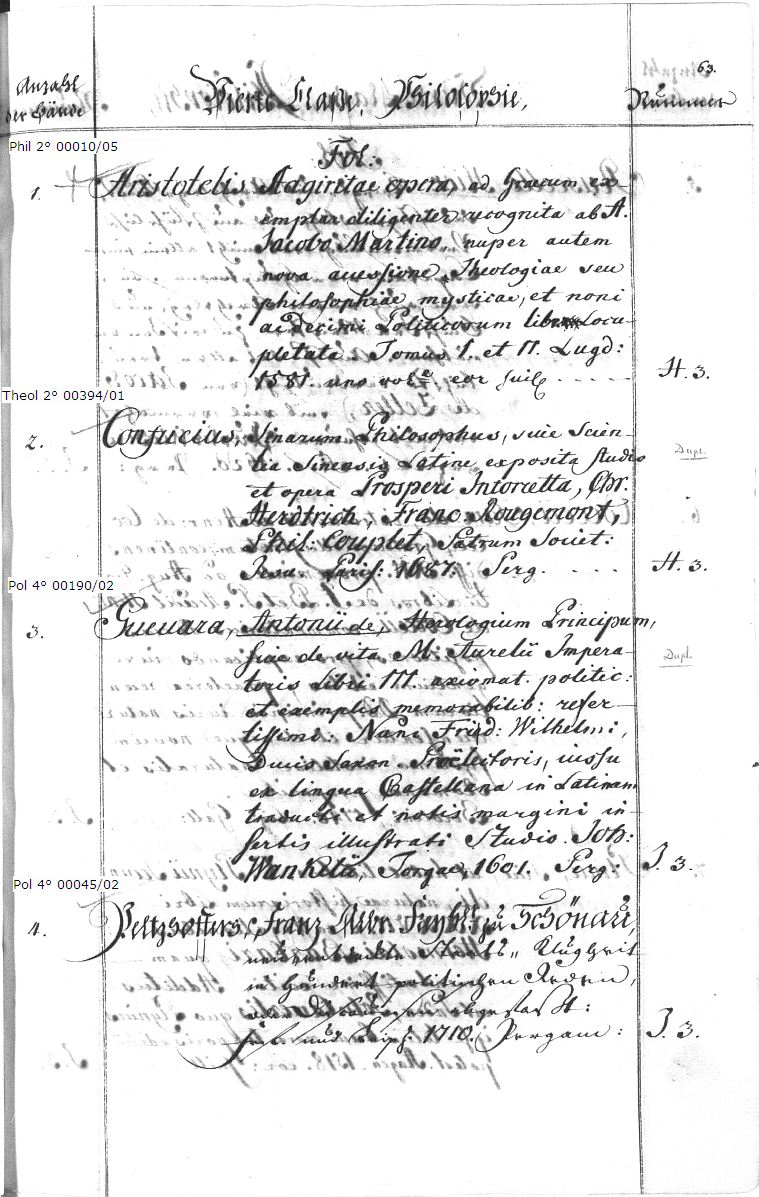 63.
Anzahl der Bände
Vierte Classe, Philosophie,
Nummer
Fol:
Phil 2° 00010/05
1.
Aristotelis Stagiritae opera, ad Graecum ex-
emplar diligenter recognita ab A.
Jacobo Martino, nuper autem
nova accessione, Theologiae seu
philosophiae mysticae, et noni
ac decimi Politicorum libr. Locu-
pletata. Tomus I. et II. Lugd:
1581. uno vol.
H. 3.
Theol 2° 00394/01
2.
Confucius, Sinarum Philosophus, sive Scien-
tia Sinensis Latine exposita studio
Dupl.
et opera Prosperi Intorcetta, Chr.
Herdtrich, Franc. Rougemont,
Phil: Couplet, Patrum Societ:
Jesu. Paris. 1687. Perg. - - - -
H. 3.
Pol 4° 00190/02
3.
Gueuara, Antonii de, Horologium Principum,
siue de vita M. Aurelii Impera-
Dupl.
toris libri III. axiomat. politic:
et exemplis memorabilib: refer-
tissimi: Nunc Frid: Wilhelmi,
Ducis Saxon. Pro Electoris, iussu
ex lingua Castellana in Latinam
traducti et notis margini in-
sertis illustrati Studio Joh:
Wanckelii, Torgae, 1601. Perg:
J. 3.
Pol 4° 00045/02
4.
Franz Freyh. zu Schönau,
neu entdeckte Staats-Klugheit
in hundert politischen Reden,
oder
und Leipz. 1710. Pergam:
J. 3.